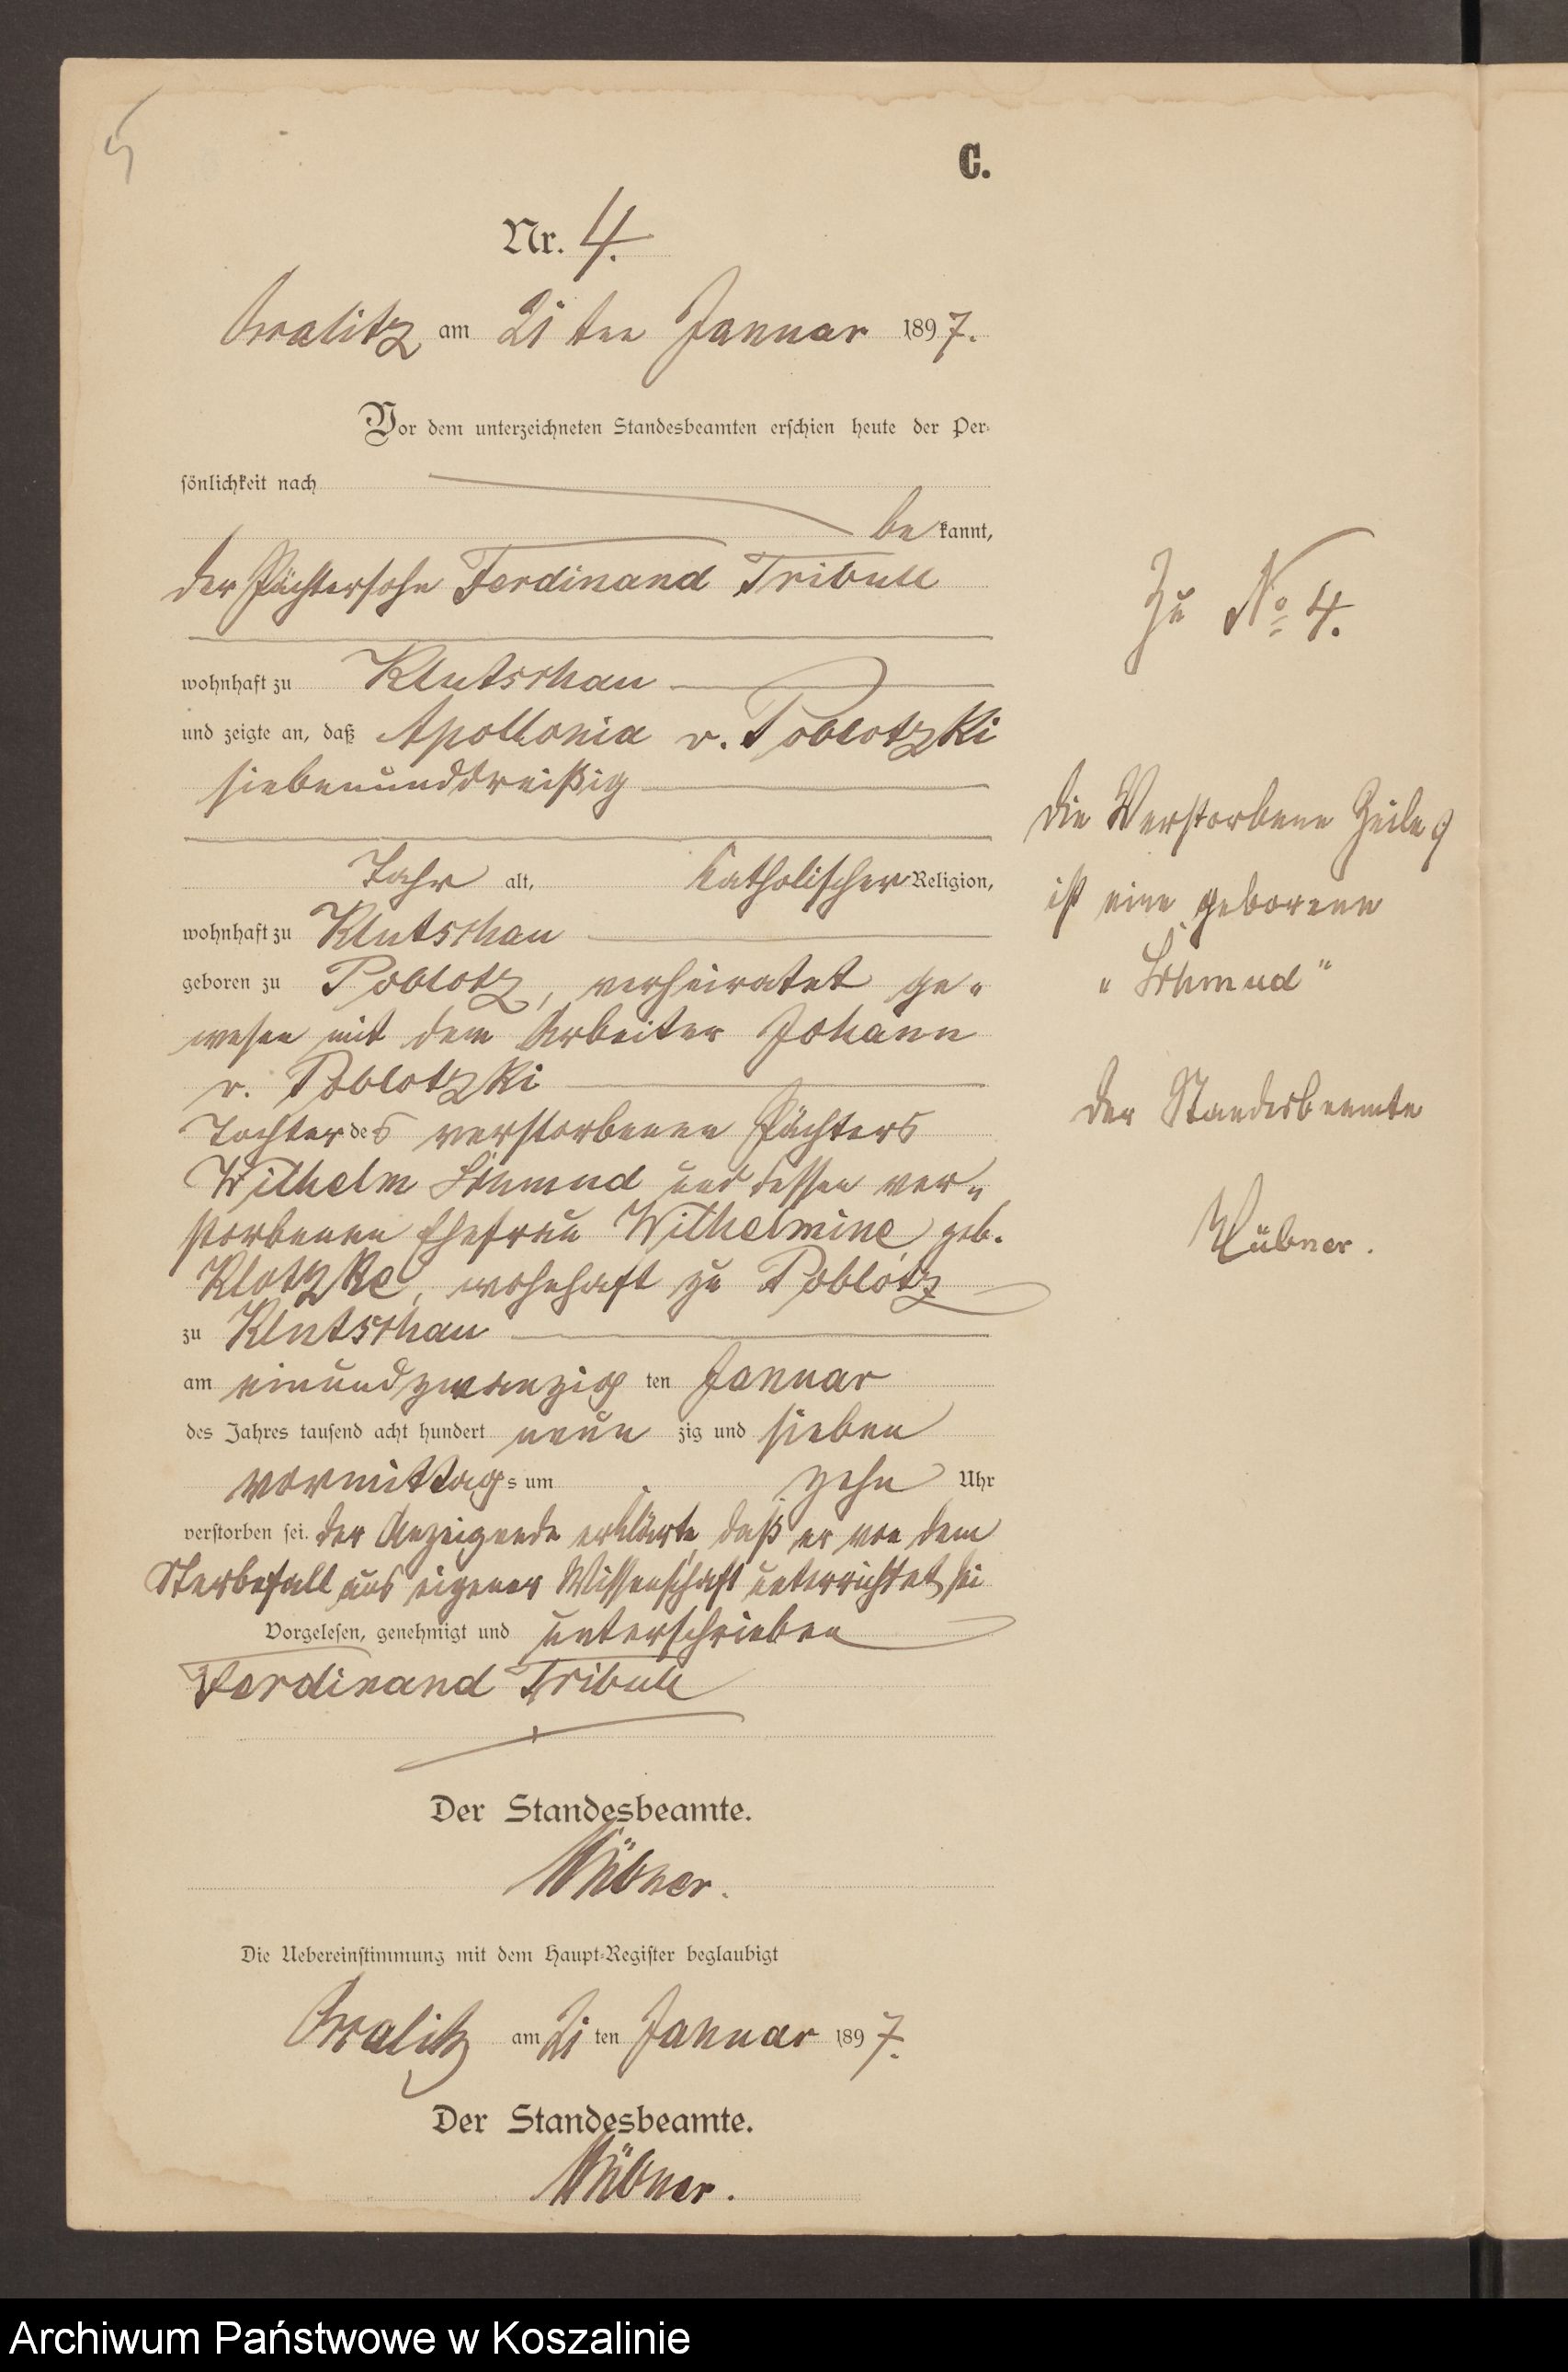 5
C.
Nr. 4.
am 21 ten Januar 1897.
Vor dem unterzeichneten Standesbeamten erschien heute der Per-
sönlichkeit nach
be kannt,
der Pächtersohn Ferdinand Tribull
wohnhaft zu Klutschau
und zeigte an, daß Apollonia v. Poblotzki
siebenunddreißig
Jahr alt, katholischer Religion,
wohnhaft zu Klutschau
geboren zu Poblotz, verheiratet ge-
wesen mit dem Arbeiter Johann
v. Poblotzki
Tochter des verstorbenen Pächters
Wilhelm und dessen ver-
storbenen Ehefrau Wilhelmine, geb.
Klotzke, wohnhaft zu Poblotz
zu Klutschau
am einundzwanzig ten Januar
des Jahres tausend acht hundert neun zig und sieben
vormittag s um zehn Uhr
verstorben sei. Der Anzeigende erklärte, daß er von dem
Sterbefall aus eigener Wissenschaft unterrichtet sei
Vorgelesen, genehmigt und unterschrieben
Ferdinand Tribull
Der Standesbeamte.
Die Uebereinstimmung mit dem Haupt-Register beglaubigt
am 21 ten Januar 1897.
Der Standesbeamte.
Zu No 4.
Die Verstorbene Zeile 9
ist eine geborene
Der Standesbeamte
Archiwum Państwowe w Koszalinie